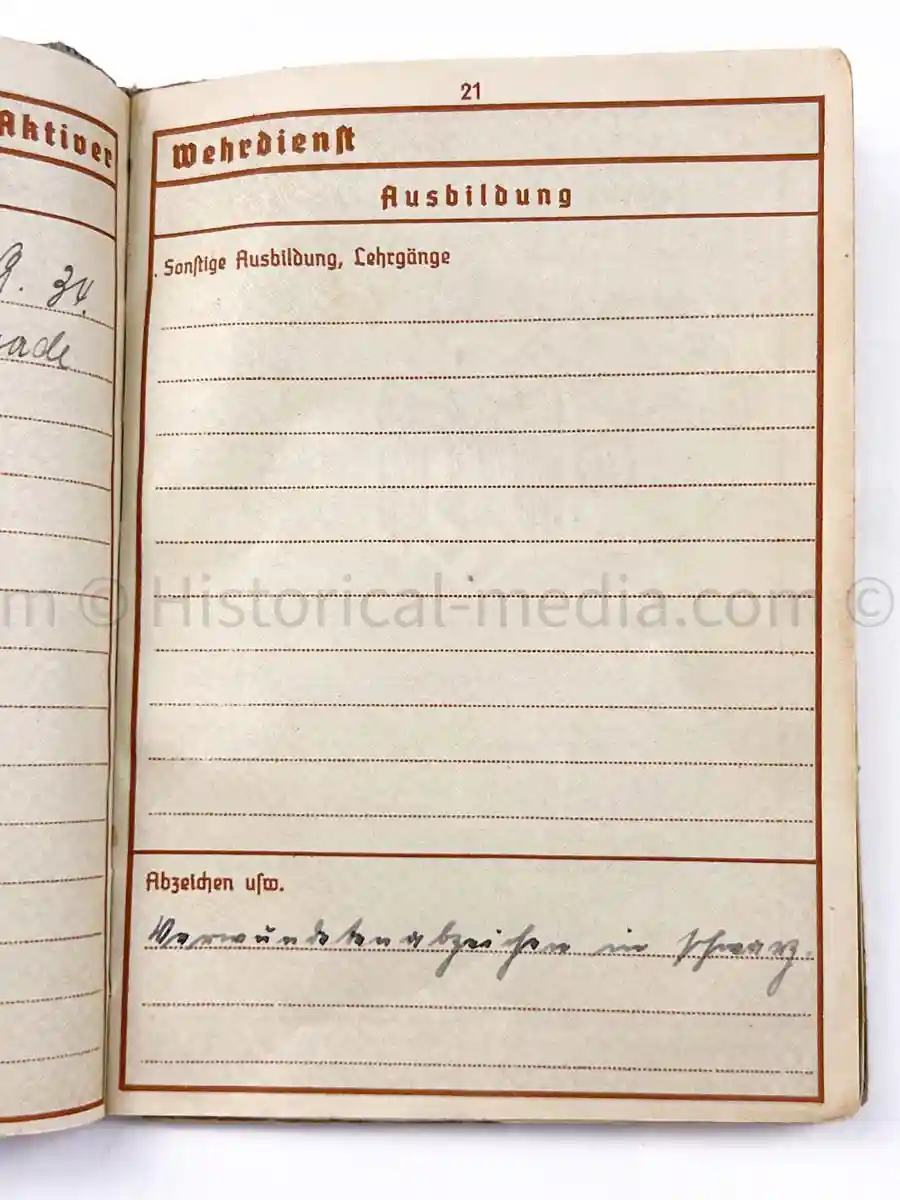 21
Aktiver
Wehrdienst
Ausbildung
. Sonstige Ausbildung, Lehrgänge
34
m © Historical-media.com ©
Abzeichen usw.
Verwundetenabzeichen in schwarz.